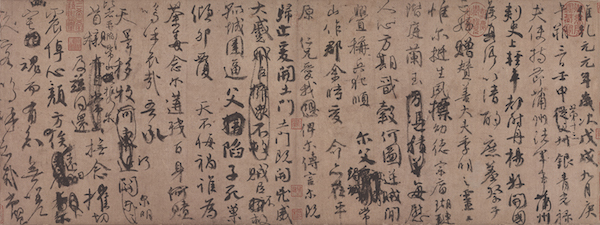 維乾元元年歲次戊戌九月庚
午朔三日壬申第十三叔銀青光祿
夫使持節蒲州諸軍事蒲州
刺史上輕車都尉丹楊縣開國
侯真卿以清酌庶羞祭于
亡姪贈贊善大夫季明之靈曰
惟爾挺生夙標幼德宗廟瑚璉
階庭蘭玉每慰
人心方期戩穀何圖逆賊間
釁稱兵犯順爾父竭誠常
山作郡余時受命亦在平
原仁兄愛我俾爾傳言爾既
歸止爰開土門土門既開凶威
大蹙賊臣不救
孤城圍逼父陷子死巢
傾卵覆天不悔禍誰為
荼毒念爾遘殘百身何贖
嗚呼哀哉吾承
天澤移牧河關泉明
首櫬及茲同還撫念摧切
震悼心顏方俟遠日
爾幽宅魂而有知無嗟
久客嗚呼哀哉尚饗